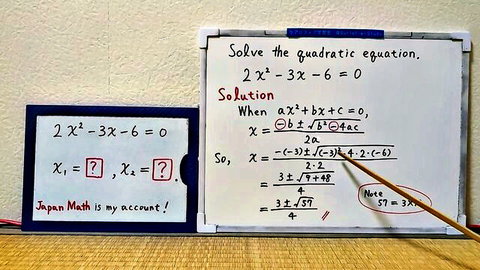 2x² - 3x - 6 = 0
x₁ = ? , x₂ = ? .
Japan Math is my account!
Solve the quadratic equation.
2x² - 3x - 6 = 0
Solution
When ax² + bx + c = 0,
x = (-b ± √(b² - 4ac)) / 2a
So, x = (-(-3) ± √((-3)² - 4·2·(-6))) / 2·2
= (3 ± √(9 + 48)) / 4
= (3 ± √57) / 4
Note
57 = 3×